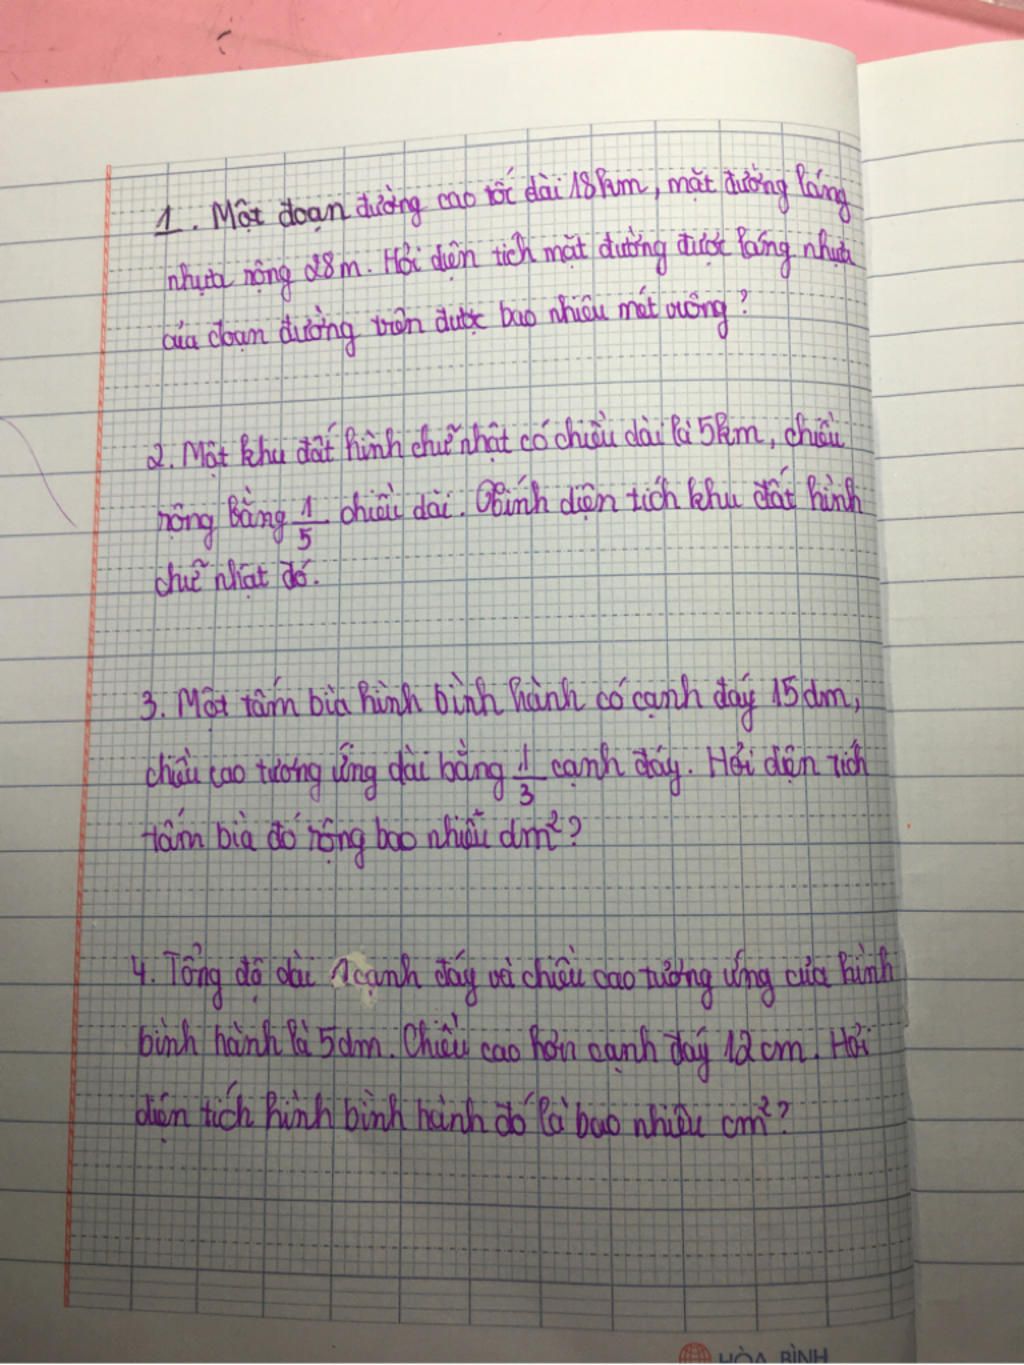 1. Một đoạn đường cao tốc dài 18km, mặt đường láng
nhựa rộng 28m. Hỏi diện tích mặt đường được láng nhựa
của đoạn đường trên được bao nhiêu mét vuông?
2. Một khu đất hình chữ nhật có chiều dài là 5km, chiều
rộng bằng 1/5 chiều dài. Tính diện tích khu đất hình
chữ nhật đó.
3. Một tấm bìa hình bình hành có cạnh đáy 15dm,
chiều cao tương ứng dài bằng 1/3 cạnh đáy. Hỏi diện tích
tấm bìa đó rộng bao nhiêu dm²?
4. Tổng độ dài 1 cạnh đáy và chiều cao tương ứng của hình
bình hành là 5dm. Chiều cao hơn cạnh đáy 12cm. Hỏi
diện tích hình bình hành đó là bao nhiêu cm²?
HÒA BÌNH